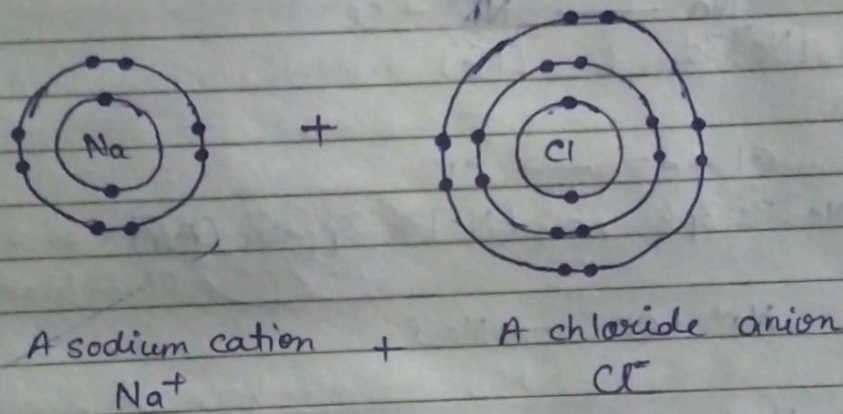 Na + Cl
A sodium cation + A chloride anion
Na⁺ Cl⁻